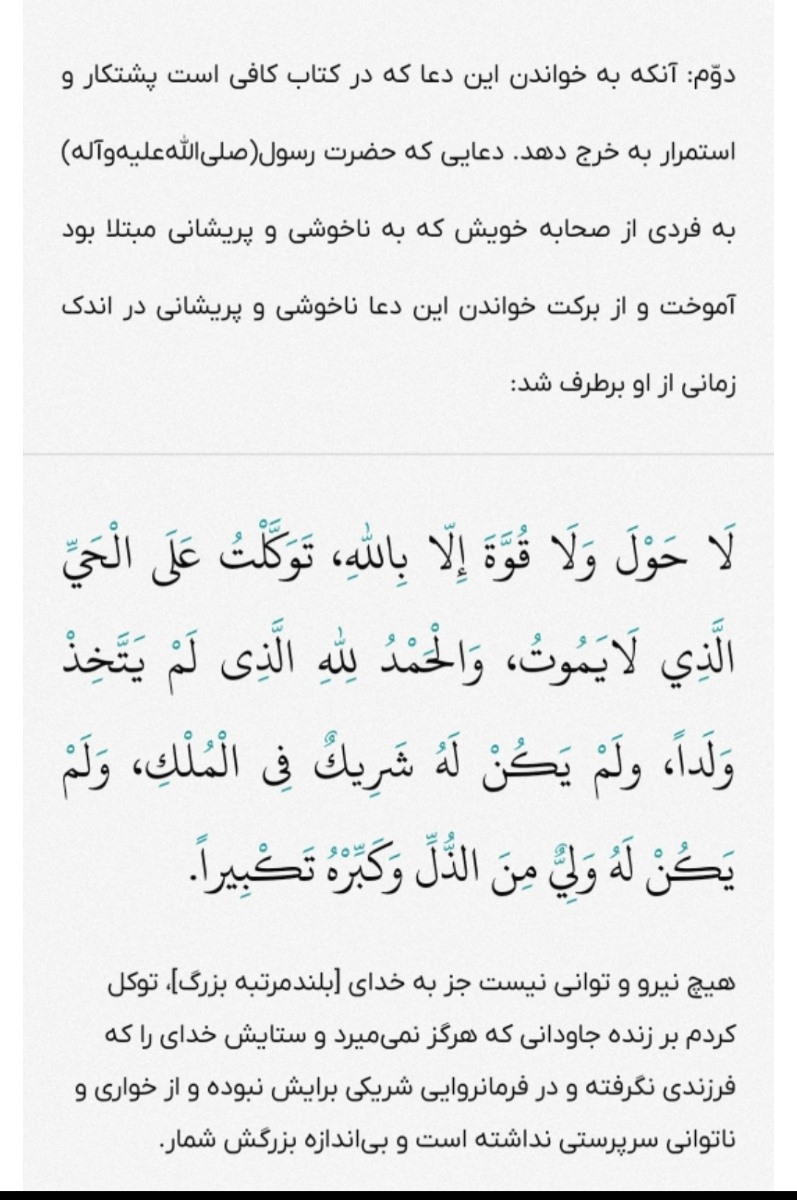 دوّم: آنکه به خواندن این دعا که در کتاب کافی است پشتکار و
استمرار به خرج دهد. دعایی که حضرت رسول(صلی‌الله‌علیه‌وآله)
به فردی از صحابه خویش که به ناخوشی و پریشانی مبتلا بود
آموخت و از برکت خواندن این دعا ناخوشی و پریشانی در اندک
زمانی از او برطرف شد:
لَا حَوْلَ وَلَا قُوَّةَ إِلّا بِاللّٰهِ، تَوَكَّلْتُ عَلَى الْحَيِّ
الَّذِي لَايَمُوتُ، وَالْحَمْدُ لِلّٰهِ الَّذِى لَمْ يَتَّخِذْ
وَلَداً، ولَمْ يَكُنْ لَهُ شَرِيكٌ فِى الْمُلْكِ، وَلَمْ
يَكُنْ لَهُ وَلِيٌّ مِنَ الذُّلِّ وَكَبِّرْهُ تَكْبِيراً.
هیچ نیرو و توانی نیست جز به خدای [بلندمرتبه بزرگ]، توکل
کردم بر زنده جاودانی که هرگز نمی‌میرد و ستایش خدای را که
فرزندی نگرفته و در فرمانروایی شریکی برایش نبوده و از خواری و
ناتوانی سرپرستی نداشته است و بی‌اندازه بزرگش شمار.